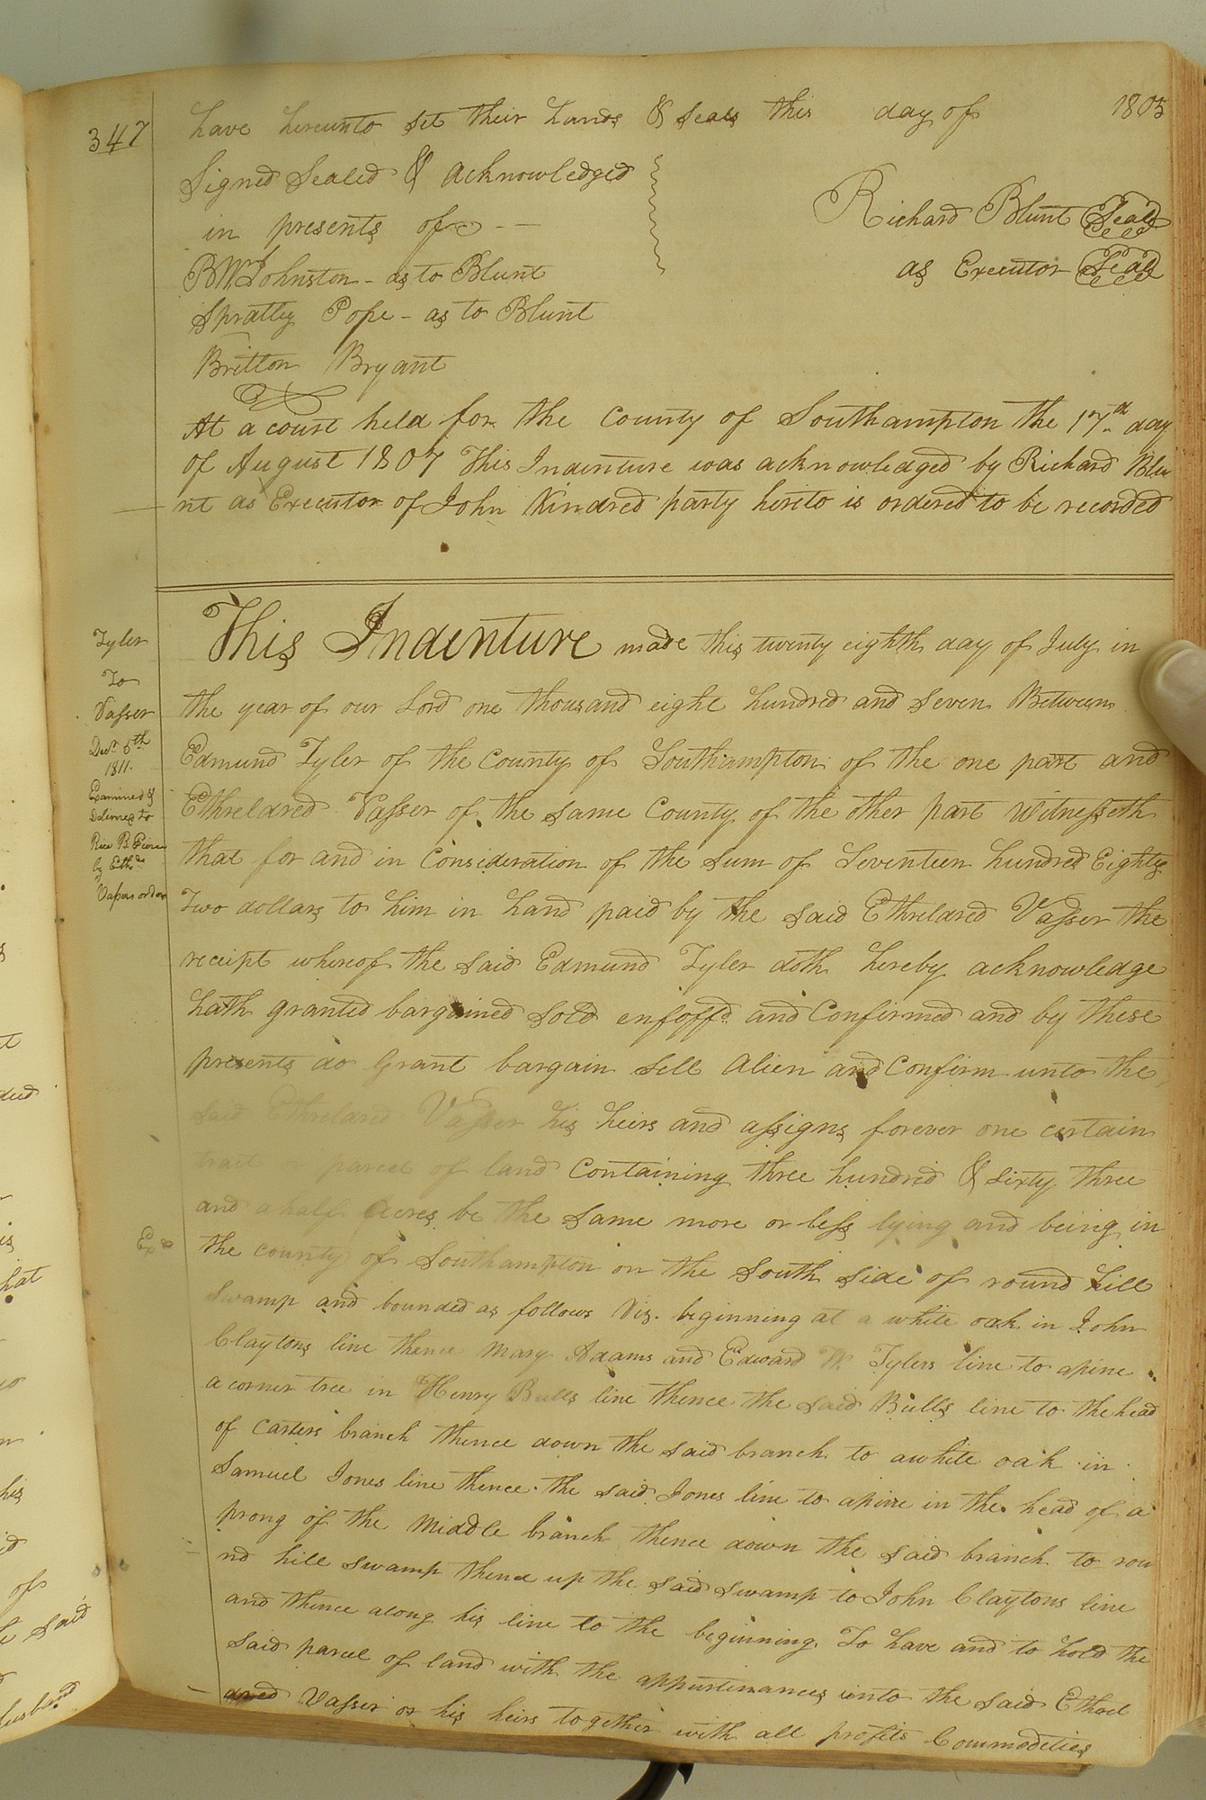 347
have hereunto set their hands & seals this day of 1805
Signed Sealed & acknowledged
in presents of
Richard Blunt Seal
B W Johnston - as to Blunt
as Executor Seal
Spratley Pope - as to Blunt
Britton Bryant
At a court held for the County of Southampton the 17th day
of August 1807 This Indenture was acknowledged by Richard Blu
nt as Executor of John Kindred party hereto is ordered to be recorded
Tyler
To
Vasser
Decr 6th
1811.
Examined &
Delivered to
Rice B
by Ethd
Vassers order
This Indenture made this twenty eighth day of July in
the year of our Lord one thousand eight hundred and seven Between
Edmund Tyler of the County of Southampton of the one part and
Ethreldred Vasser of the same County of the other part Witnesseth
that for and in Consideration of the sum of Seventeen hundred Eighty
Two dollars to him in hand paid by the said Ethreldred Vasser the
receipt whereof the said Edmund Tyler doth hereby acknowledge
hath granted bargained sold enfoffd and Confirmed and by these
presents do Grant bargain sell Alien and Confirm unto the
said Ethreldred Vasser his heirs and assigns forever one certain
tract or parcel of land Containing three hundred & sixty three
and a half Acres be the same more or less lying and being in
Exd
the county of Southampton on the South side of round hill
Swamp and bounded as follows Viz. beginning at a white oak in John
Claytons line thence Mary Adams and Edward W. Tylers line to apine
a corner tree in Henry Bulls line thence the said Bulls line to the head
of Carters branch thence down the said branch to awhite oak in
Samuel Jones line thence the said Jones line to apine in the head of a
prong of the Middle branch thence down the said branch to rou
nd hill swamp thence up the said swamp to John Claytons line
and thence along his line to the beginning. To have and to hold the
said parcel of land with the appurtinances unto the said Ethrel
dred Vasser or his heirs together with all profits Commodities